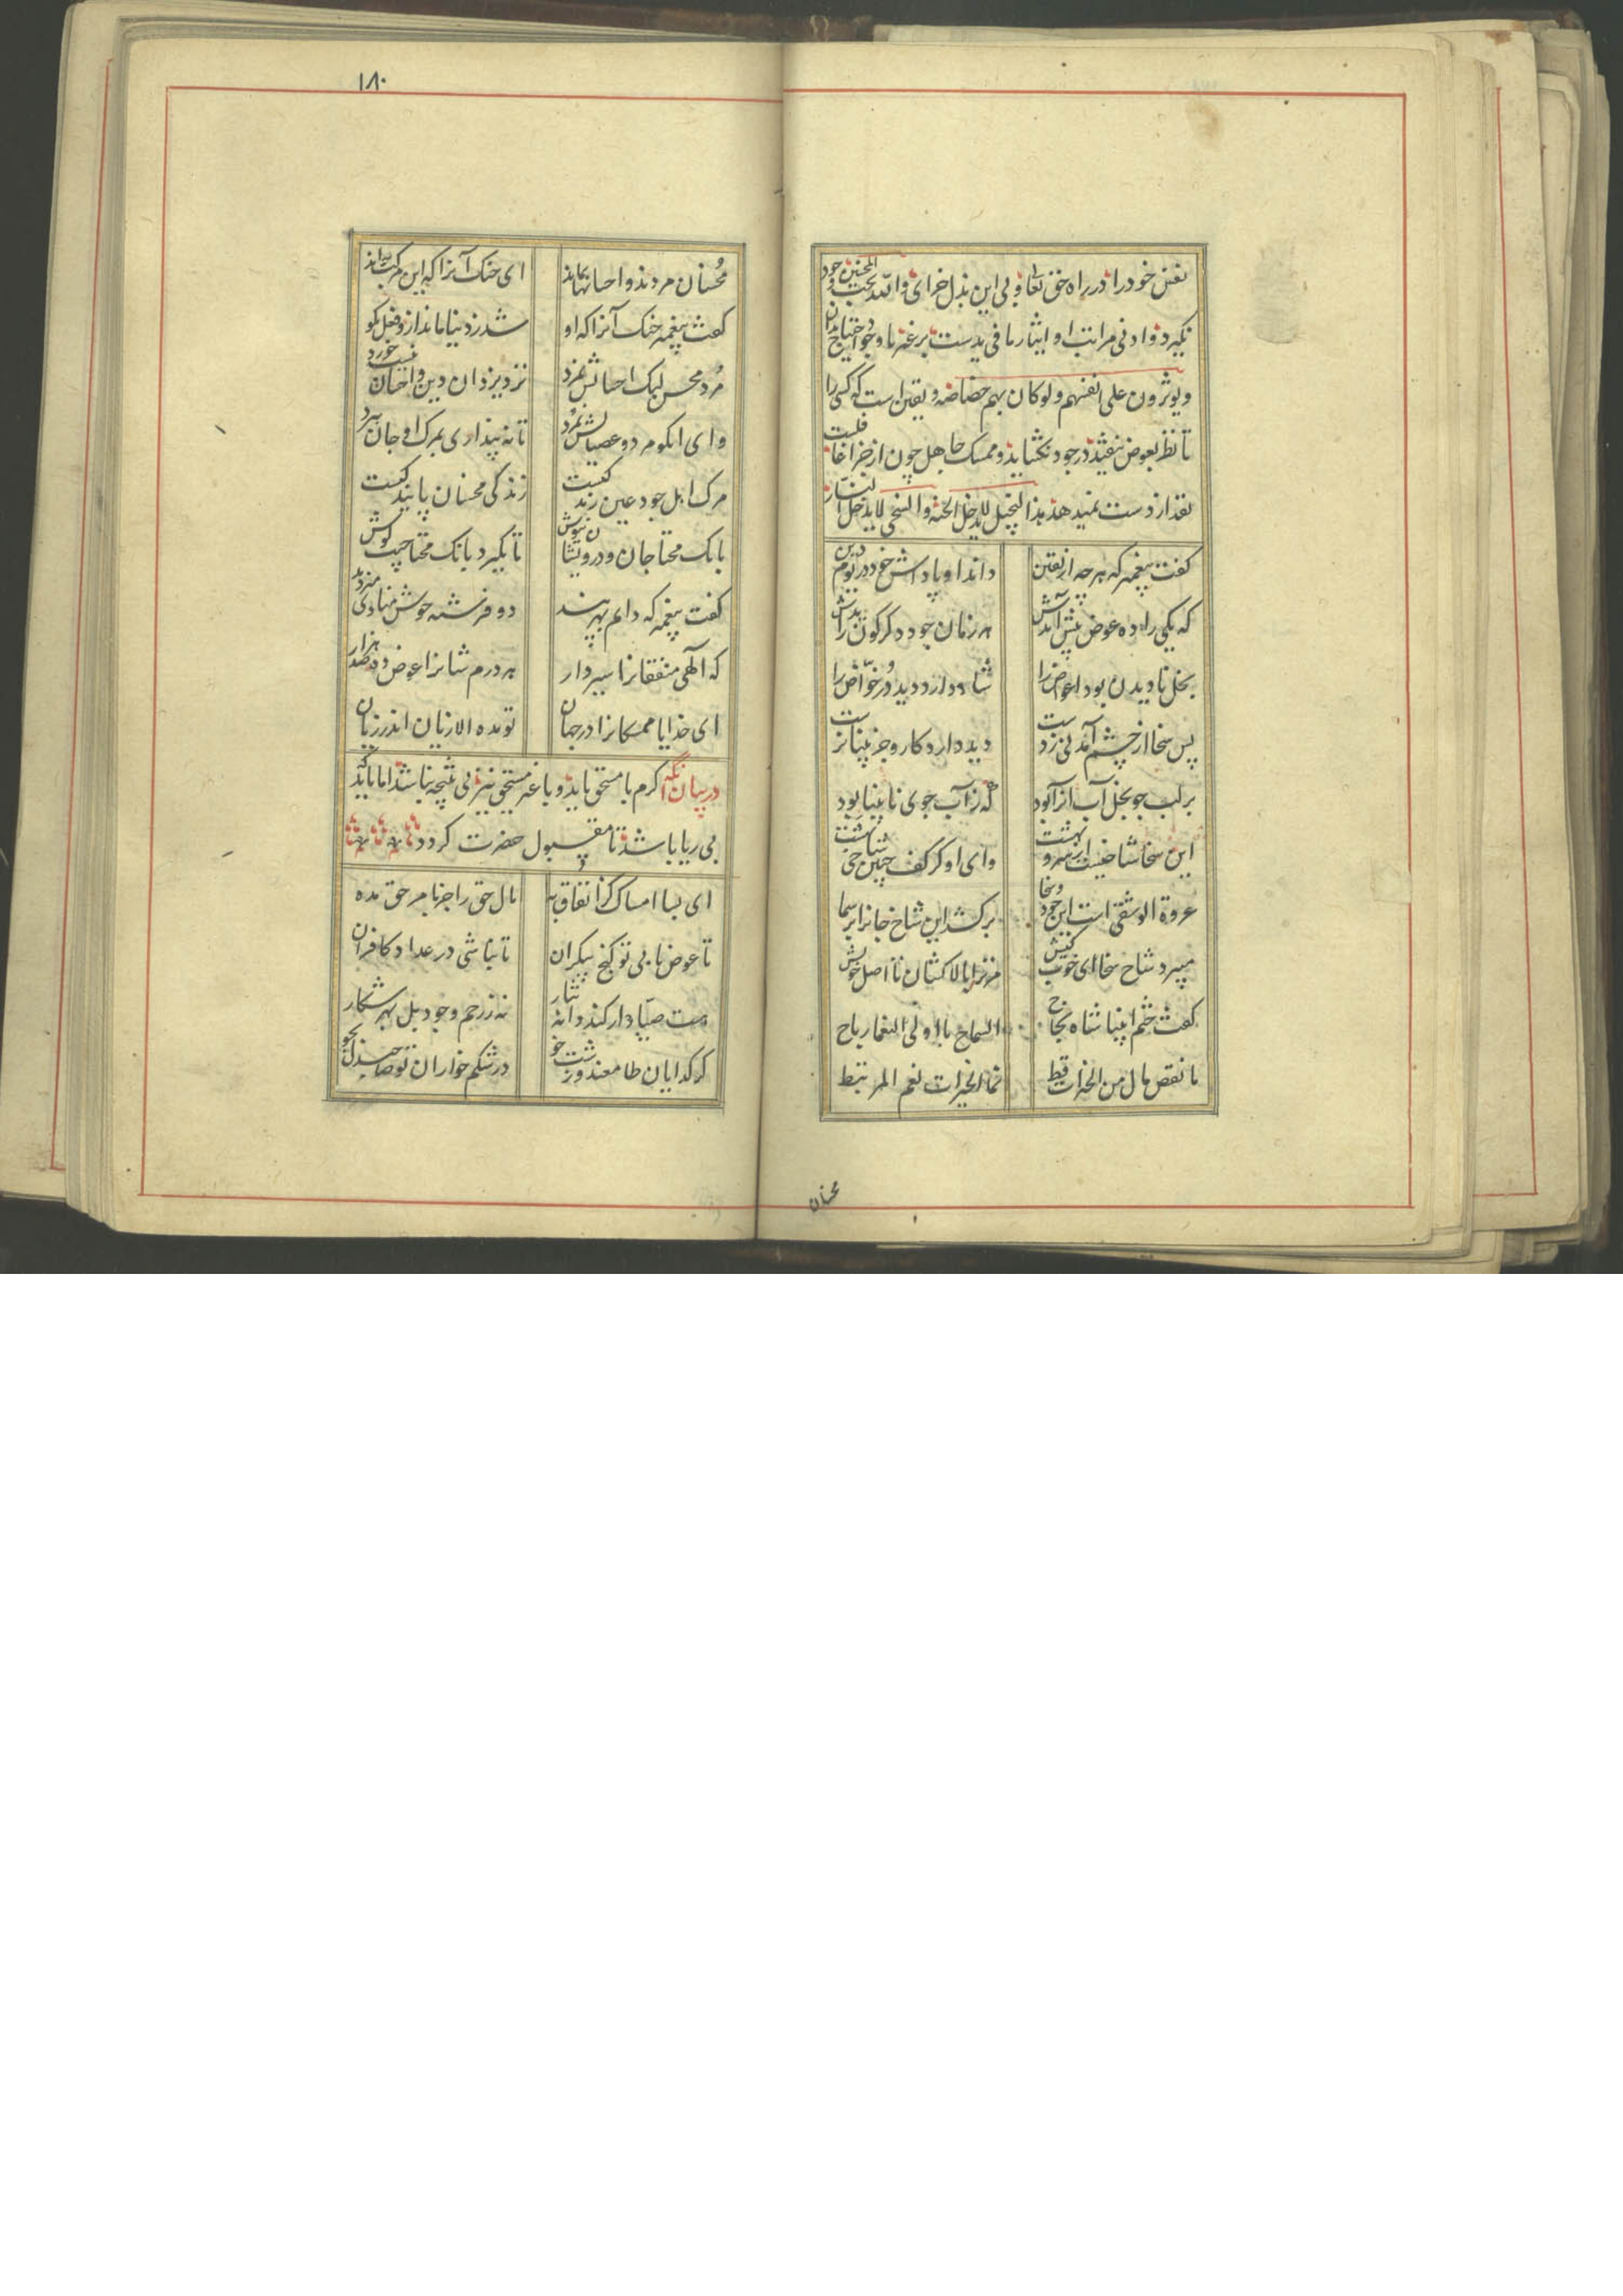 نفس خود را در راه حق تعالی و بی این بذل جزای والله یحب المحسنین وجود
نگیرد و ادنی مراتب او ایثار ما فی یدست بر غیر با وجود احتیاج بدان
ویؤثرون علی انفسهم ولو کان بهم خصاصه و یقین است که کسی را
تا نظر بعوض نیفتد در جود نگشاید و ممسک جاهل چون از جزا غافلست
نقد از دست نمیدهد هذا البخیل لا یدخل الجنه والسخی لا یدخل النار
کفت پیغمبر که هر چه از یقین داند او پاداش خود در یوم دین
که یکی را ده عوض پیش آیدش هر زمان جود دکرکون زایدش
بخل نادیدن بود اعواض را شاد دارد دید در خواض را
پس سخا از چشم آمد نی ز دست دید دارد کار و جز بینا نرست
بر لب جو بخل آب آنرا بود که ز آب جوی نابینا بود
این سخا شاخیست از سرو بهشت وای او کز کف چنین شاخی بهشت
عروة الوثقی است این جود و سخا برکشد این شاخ جانرا بر سما
میبرد شاخ سخا ای خوب کیش مر ترا بالا کشان تا اصل خویش
کفت ختم انبیا شاه نجاح السماح یا اولی النعما رباح
ما نقص مال من الخیرات قط نما الخیرات نعم المرتبط
محسنان
۱۸۰
محسنان مردند و احسانها بماند ای خنک آنرا که این مرکب براند
کفت پیغمبر خنک آنرا که او شد ز دنیا ماند ازو فعل نکو
مرد محسن لیک احسانش نمرد نزد یزدان دین و احسان نیست خورد
وای آنکو مرد و عصیانش نمرد تا نه پنداری بمرک او جان ببرد
مرک اهل جود عین زندکیست زندکی محسنان پایندکیست
بانک محتاجان و درویشان نیوش تا نگیرد بانک محتاجیت کوش
کفت پیغمبر که دایم بهر پند دو فرشته خوش منادی میزند
که الهی منفقانرا سیر دار هر درم شانرا عوض ده صد هزار
ای خدایا ممسکانرا در جهان تو مده الا زیان اندر زیان
در بیان آنکه کرم با مستحق باید و با غیر مستحق نیز بی نتیجه نباشد اما باید که
بی ریا باشد تا مقبول حضرت کردد
ای بسا امساک کز انفاق به مال حق را جز بامر حق مده
تا عوض یابی تو کنج بیکران تا نباشی در عداد کافران
هست صیاد ار کند دانه نثار نه ز رحم وجود بل بهر شکار
کر کدایان طامعند و زشت خو در شکم خواران تو صاحبدل بجو